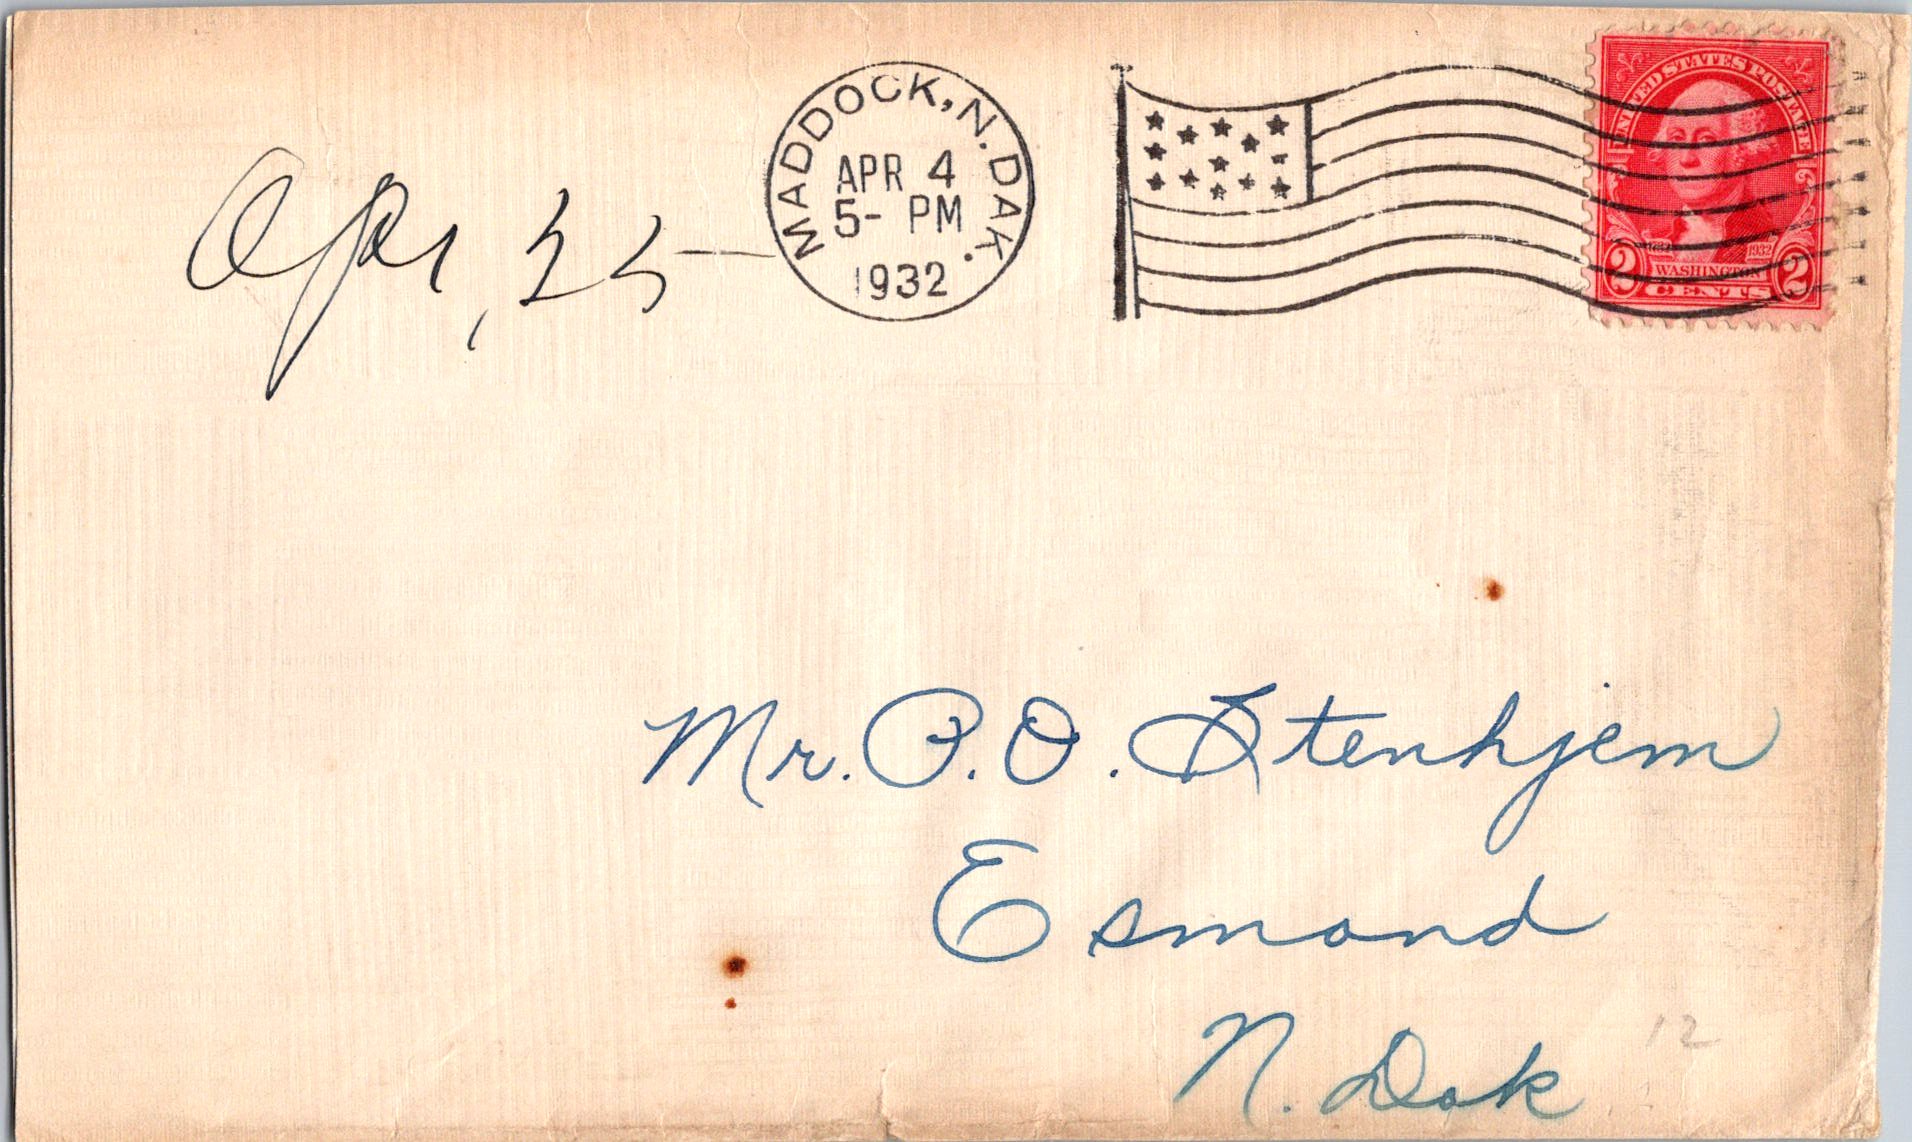 MADDOCK, N. DAK.
APR 4
5- PM
1932
UNITED STATES POSTAGE
1932
2 WASHINGTON 2
CENTS
Apr, 25
Mr. P. O. Stenhjem
Esmond
N. Dak
12